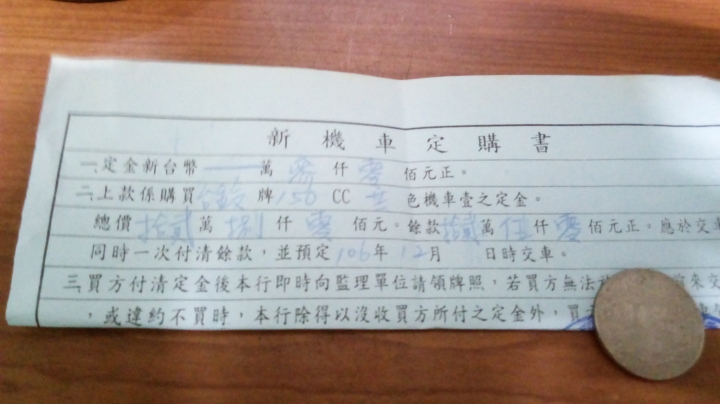 新機車定購書
一、定金新台幣 萬零仟零佰元正。
二、上款係購買 牌150 CC 色機車壹之定金。
總價拾貳萬捌仟零佰元。餘款拾 萬伍仟零佰元正。應於交
同時一次付清餘款，並預定106年12月 日時交車。
三、買方付清定金後本行即時向監理單位請領牌照，若買方無法 來交
，或違約不買時，本行除得以沒收買方所付之定金外，買